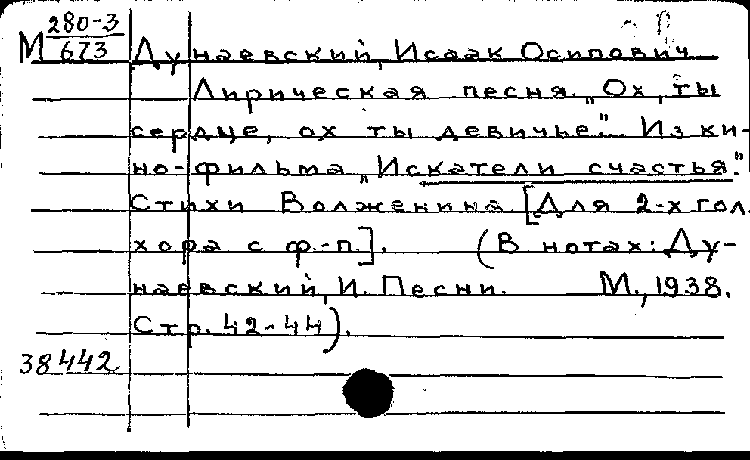 М 280-3/673
Дунаевский, Исаак Осипович
Лирическая песня „Ох, ты
сердце, ох ты девичье". Из ки-
но-фильма „Искатели счастья".
Стихи Волженина [Для 2-х гол.
хора с ф.-п.]. (В нотах: Ду-
наевский, И. Песни. М., 1938.
Стр. 42-44).
38442